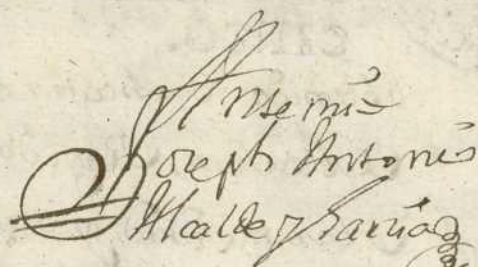 Ante mi
Joseph Antonio
Alcalde y